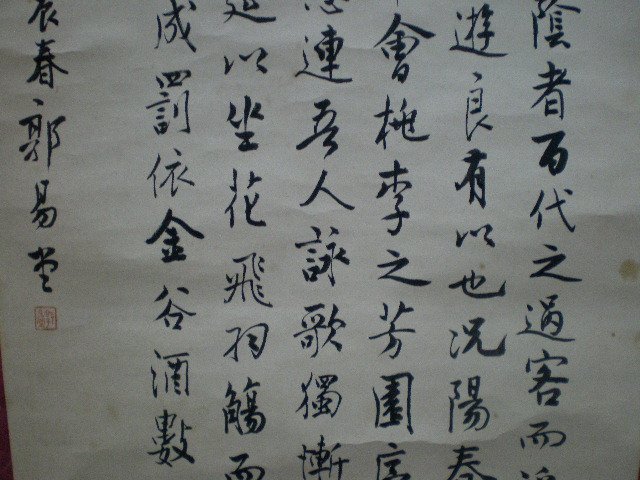 陰者百代之過客而
遊良有以也況陽春
會桃李之芳園序
連吾人詠歌獨慚
筵以坐花飛羽觴而
成罰依金谷酒數
辰春郭易堂